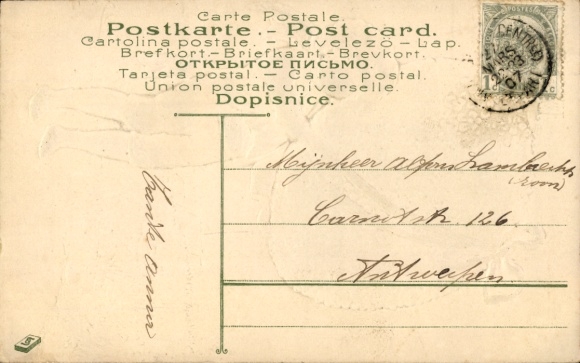 Carte Postale.
Postkarte. - Post card.
Cartolina postale. - Levelező - Lap.
Brefkort. - Briefkaart. - Brevkort.
ОТКРЫТОЕ ПИСЬМО.
Tarjeta postal. - Carto postal.
Union postale universelle.
Dopisnice.
POSTES
Mijnheer Alfons Lambrechts
(zoon)
Carnotstr. 126.
Antwerpen
Tante Anna